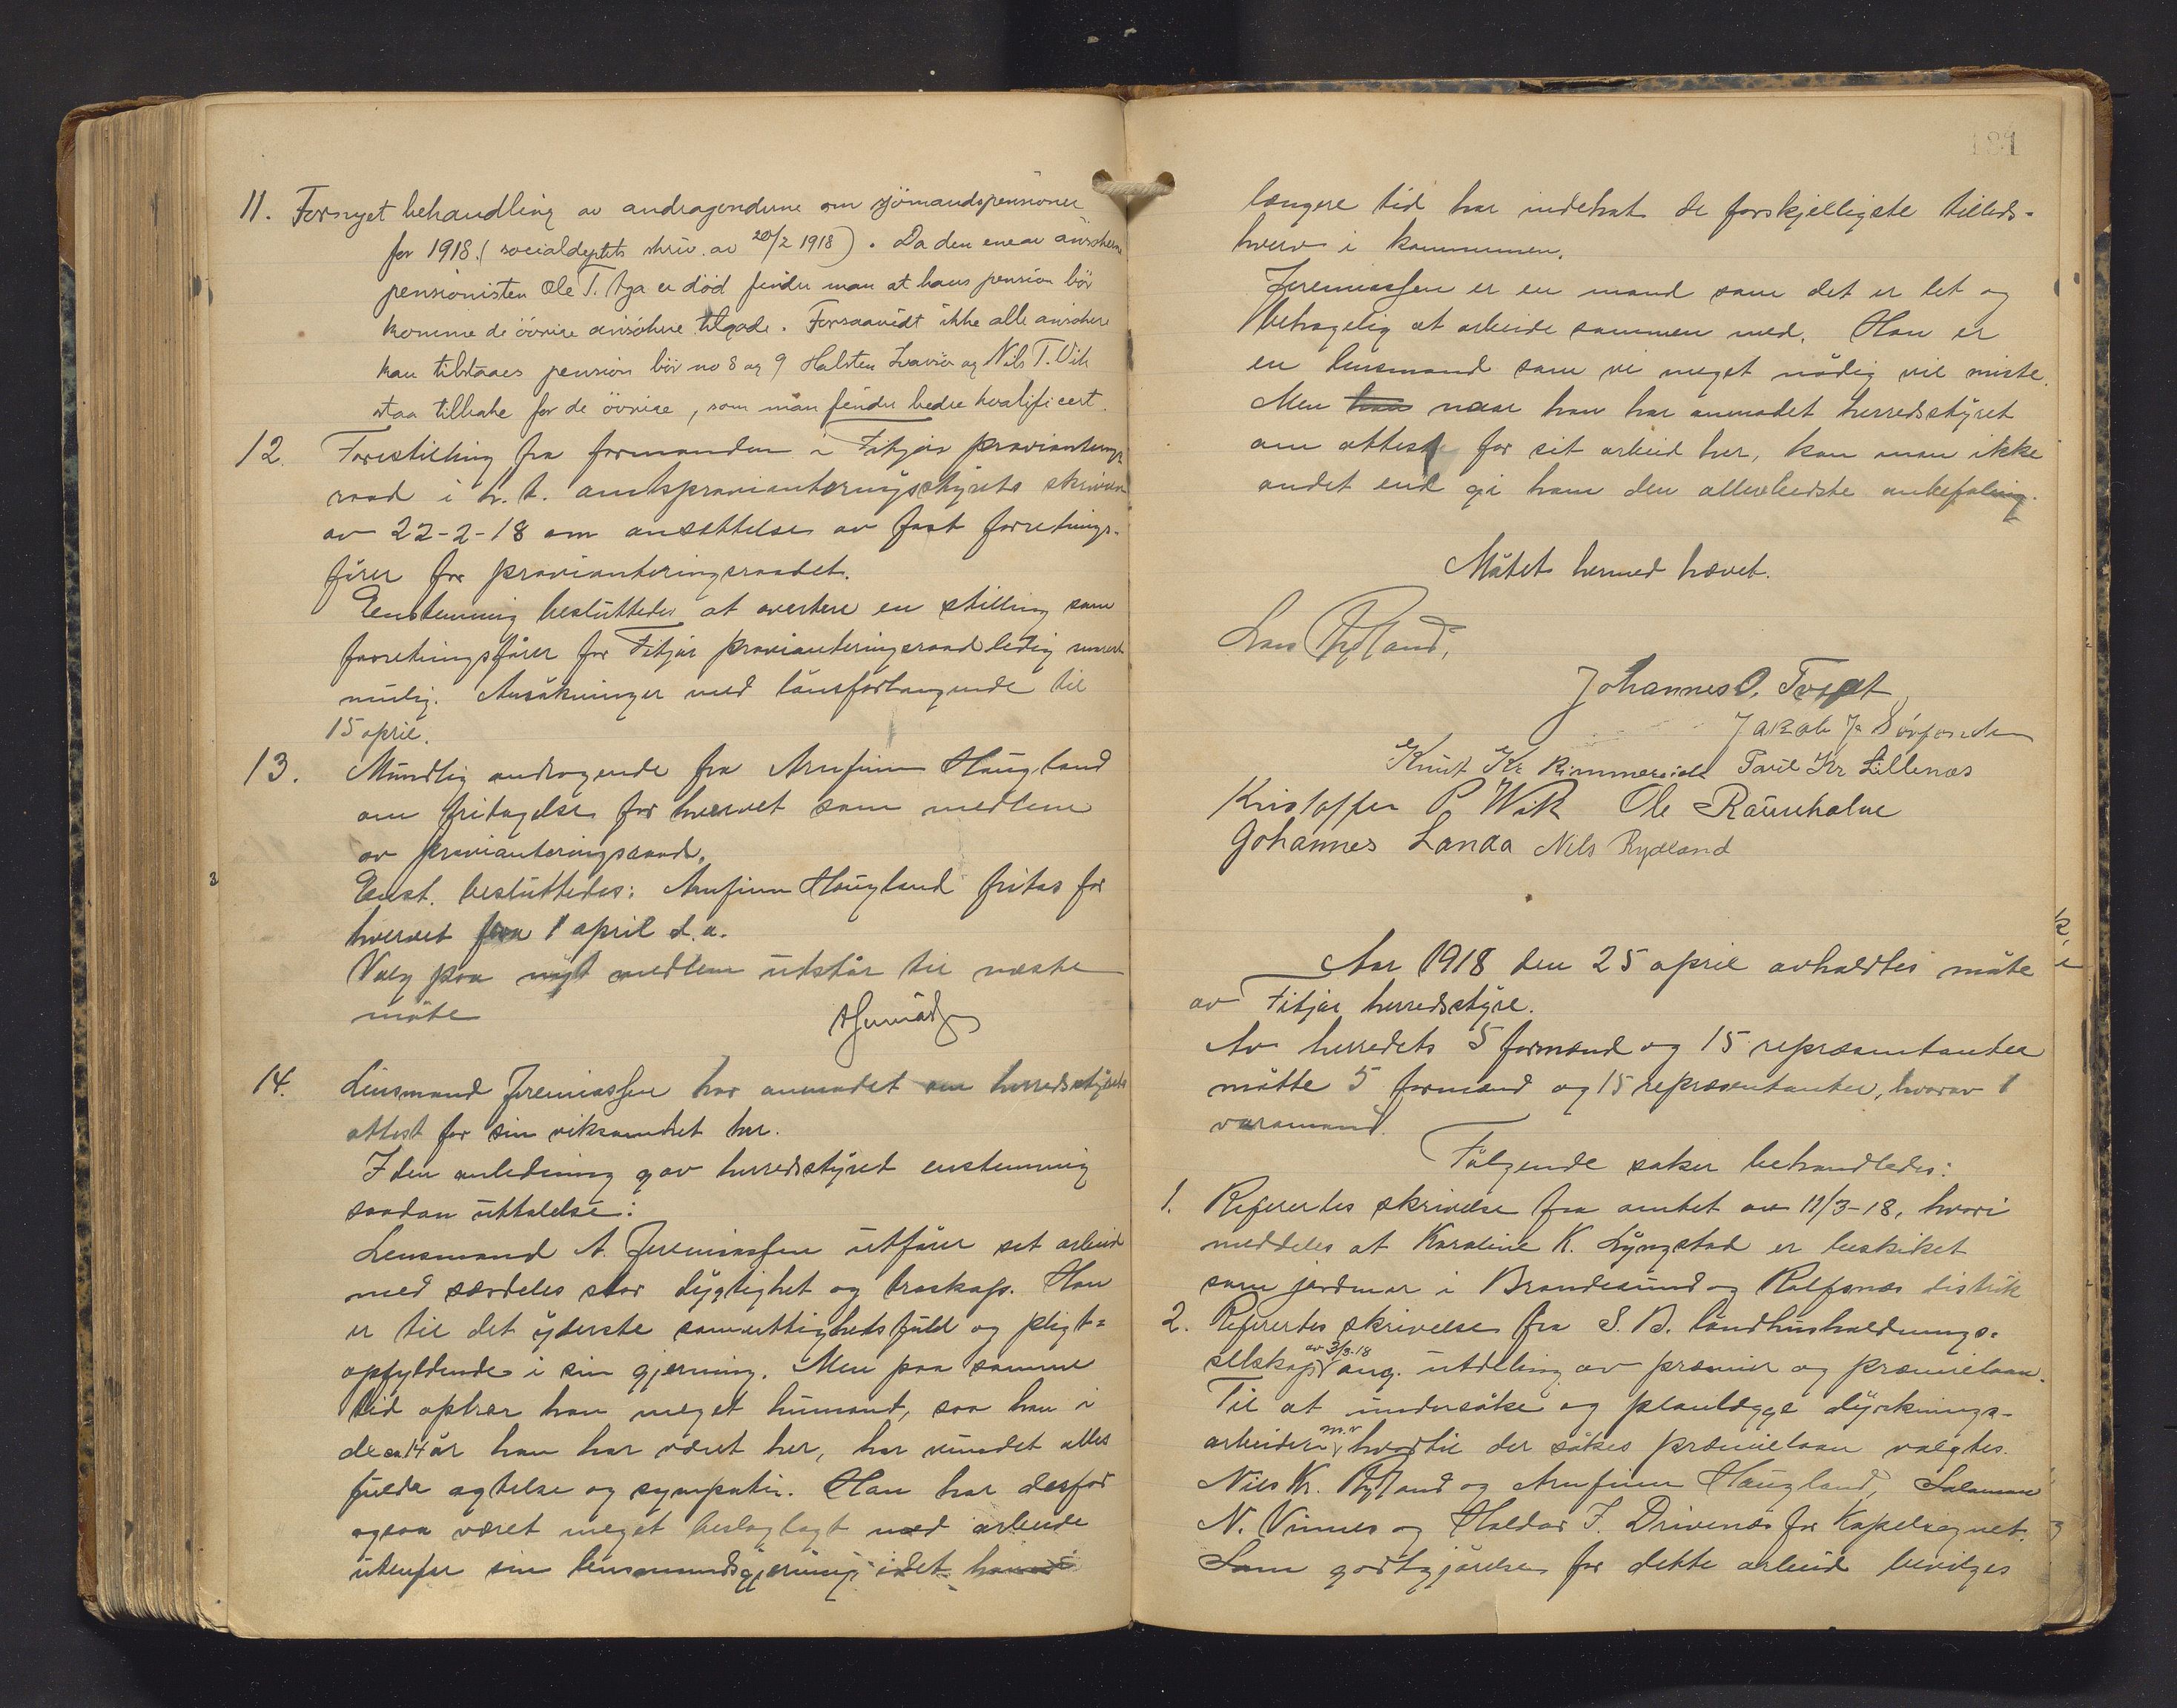 11. Fornyet behandling av andragenderne om sjömandspensioner
for 1918. (socialdeptets skriv. av 20/2 1918). Da den ene av ansökerne
pensionisten Ole T. Aga er död finder man at hans pension bör
komme de övrige ansökere tilgode. Forsaavidt ikke alle ansökere
kan tilstaaes pension bör no 8 og 9 Halsten og Nils T. Vik
staa tilbake for de övrige, som man finder bedre kvalificert.
12. Forestilling fra formanden i Fitjar provianterings
raad i h. t. amtsprovianteringsstyrets skrivelse
av 22-2-18 om ansættelse av fast forretnings-
förer for provianteringsraadet.
Enstemmig besluttedes at avertere en stilling som
forretningsförer for Fitjar provianteringsraad ledig snarest
mulig. Ansökninger med lönsforlangende til
15 april.
13. Mundtlig andragende fra Arnfinn Haugland
om fritagelse for hvervet som medlem
av provianteringsraad.
Enst. besluttedes: Arnfinn Haugland fritas for
hvervet fra 1 april d.a.
Valg paa nyt medlem utstår til næste
möte
14. Lensmand Jeremiassen har anmodet om herredsstyrets
attest for sin virksomhet her.
I den anledning gav herredsstyret enstemmig
saadan uttalelse:
Lensmand A. Jeremiassen utförer sit arbeid
med særdeles stor dygtighet og troskap. Han
er til det yderste samvittighedsfuld og pligt-
opfyldende i sin gjerning. Men paa samme
tid optrær han meget humant, saa han i
de ca 14 år han har været her, har vundet alles
fulde agtelse og sympati. Han har desfor
ogsaa været meget beslaglagt med arbeide
utenfor sin lensmandsgjerning, idet han
181
længere tid har indehat de forskjelligste tillids-
hverv i kommunen.
Jeremiassen er en mand som det er let og
behagelig at arbeide sammen med. Han er
en lensmand som vi meget nödig vil miste.
Men han naar han har anmodet herredsstyret
om attest for sit arbeid her, kan man ikke
andet end gi ham den allerbedste anbefaling.
Mötet hermed hævet.
Lars Rydland,
Johannes O. Tveit
Jakob J. Sörfonden
Knut Kr Rimmereid Paul Kr Lillenæs
Kristoffer P Wik Ole Raunholm
Johannes Landa Nils Rydland
Aar 1918 den 25 april avholdtes möte
av Fitjar herredsstyre.
Av herredets 5 formænd og 15 repræsentanter
mötte 5 formænd og 15 repræsentanter, hvorav 1
varamand.
Fölgende saker behandledes:
1. Refertes skrivelse fra amtet av 11/3-18, hvori
meddeles at Karoline K. Lyngstad er beskikket
som jordmor i Brandesund og Rolfsnes distrikt
2. Refertes skrivelse fra S. B. landhusholdnings-
selskap av 3/3-18 ang. utdeling av præmier og præmielaan.
Til at undersöke og planlægge dyrknings-
arbeider m.v hvortil der sökes præmielaan valgtes.
Nils Kr. Rydland og Arnfinn Haugland, Salamon
N. Vinnes og Haldor J. Drivenes for Kapelsognet.
Som godtgjörelse for dette arbeid bevilges